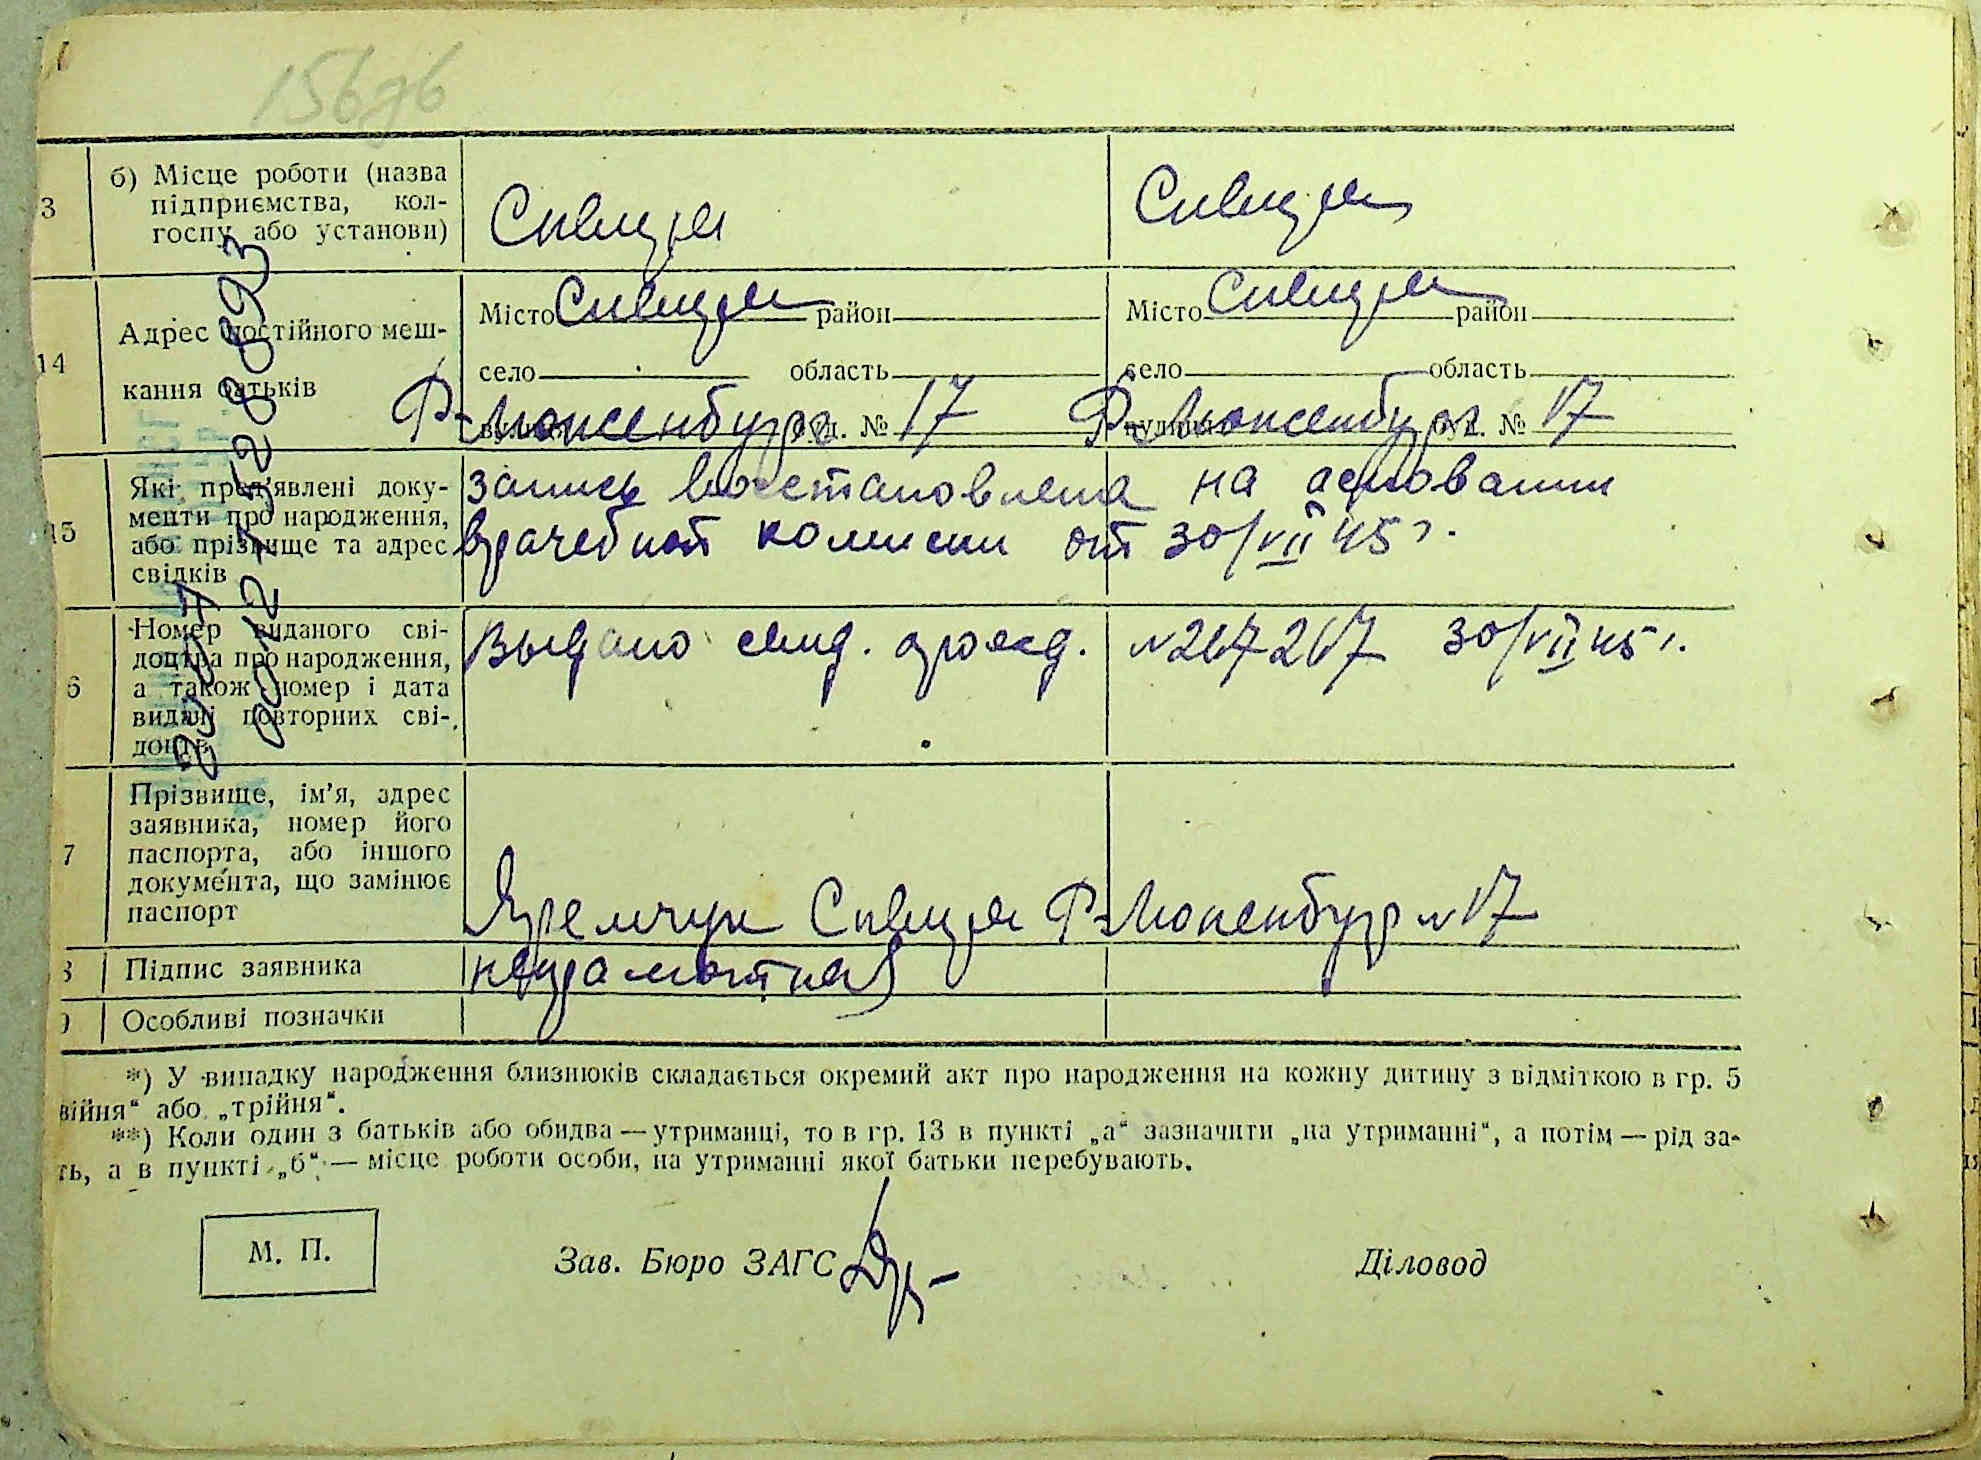 156
3
б) Місце роботи (назва
підприємства, кол-
госпу або установи)
Сквища
Сквища
14
Адрес постійного меш-
кання батьків
Місто Сквища район
село область
Р-Люксенбург буд. № 17
Місто Сквища район
село область
Р-Люксенбург буд. № 17
15
Які пред'явлені доку-
менти про народження,
або прізвище та адрес
свідків
запись восстановлена на основании
врачебной комиссии от 30/VII 45 г.
6
Номер виданого сві-
доцтва про народження,
а також номер і дата
видачі повторних сві-
доцтв
Выдано свид. о рожд. № 267267 30/VII 45 г.
7
Прізвище, ім'я, адрес
заявника, номер його
паспорта, або іншого
документа, що замінює
паспорт
Яремчук Сквища Р-Люксенбург № 17
8
Підпис заявника
неграмотная
9
Особливі позначки
*) У випадку народження близнюків складається окремий акт про народження на кожну дитину з відміткою в гр. 5
війня“ або „трійня“.
**) Коли один з батьків або обидва — утриманці, то в гр. 13 в пункті „а“ зазначити „на утриманні“, а потім — рід за-
ть, а в пункті „б“ — місце роботи особи, на утриманні якої батьки перебувають.
М. П.
Зав. Бюро ЗАГС
Діловод